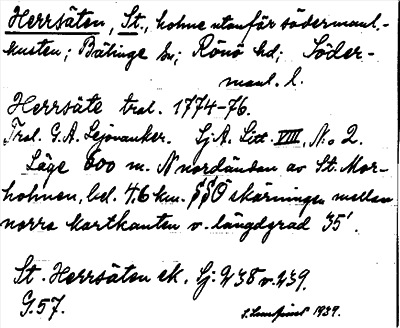 Herrsäten, St., holme utanför södermanl.-
kusten; Bälinge sn; Rönö hd; Söder-
manl. l.
Herrsäte tral. 1774-76.
Tral. G.A. Lejonanker. Sj.A. Litt. VIII, N:o 2.
Läge 600 m. N nordändan av St. Mor-
holmen, bel. 4,6 km. SSO skärningen mellan
norra kartkanten o. längdgrad 35'.
St. Herrsäten ek. Sj: 238 v. 239.
G. 57.
1939.